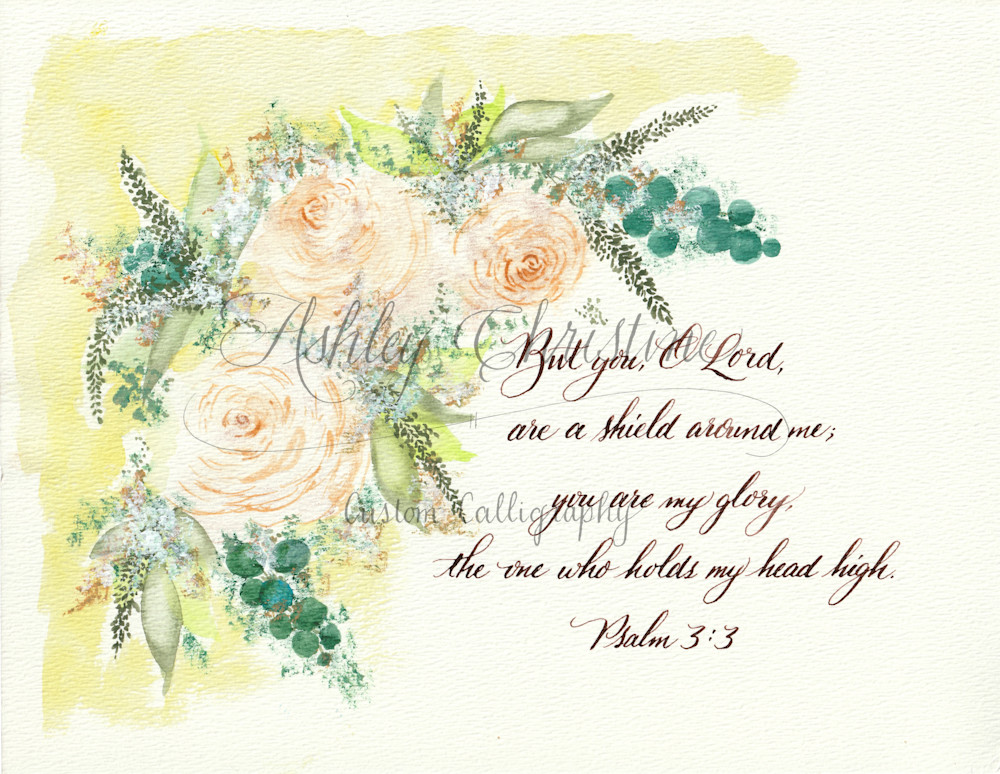 Ashley Christine
But you, O Lord,
are a shield around me;
you are my glory,
Custom Calligraphy
the one who holds my head high.
Psalm 3:3